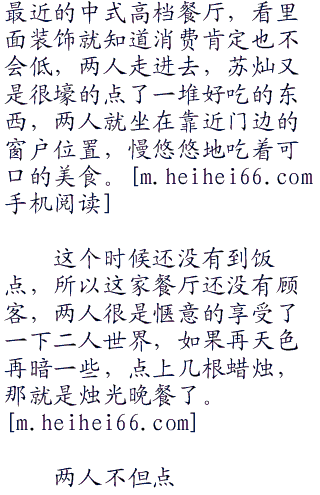 最近的中式高档餐厅，看里
面装饰就知道消费肯定也不
会低，两人走进去，苏灿又
是很壕的点了一堆好吃的东
西，两人就坐在靠近门边的
窗户位置，慢悠悠地吃着可
口的美食。[m.heihei66.com
手机阅读]
这个时候还没有到饭
点，所以这家餐厅还没有顾
客，两人很是惬意的享受了
一下二人世界，如果再天色
再暗一些，点上几根蜡烛，
那就是烛光晚餐了。
[m.heihei66.com]
两人不但点